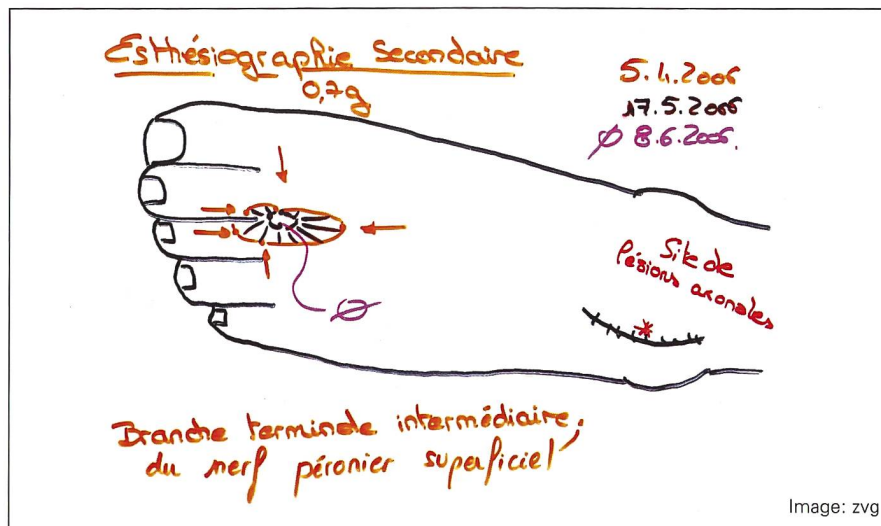 Esthésiographie Secondaire
0,7g
5.4.2006
17.5.2006
∅ 8.6.2006.
Site de
lésions axonales
*
∅
Branche terminale intermédiaire,
du nerf péronier superficiel
Image: zvg